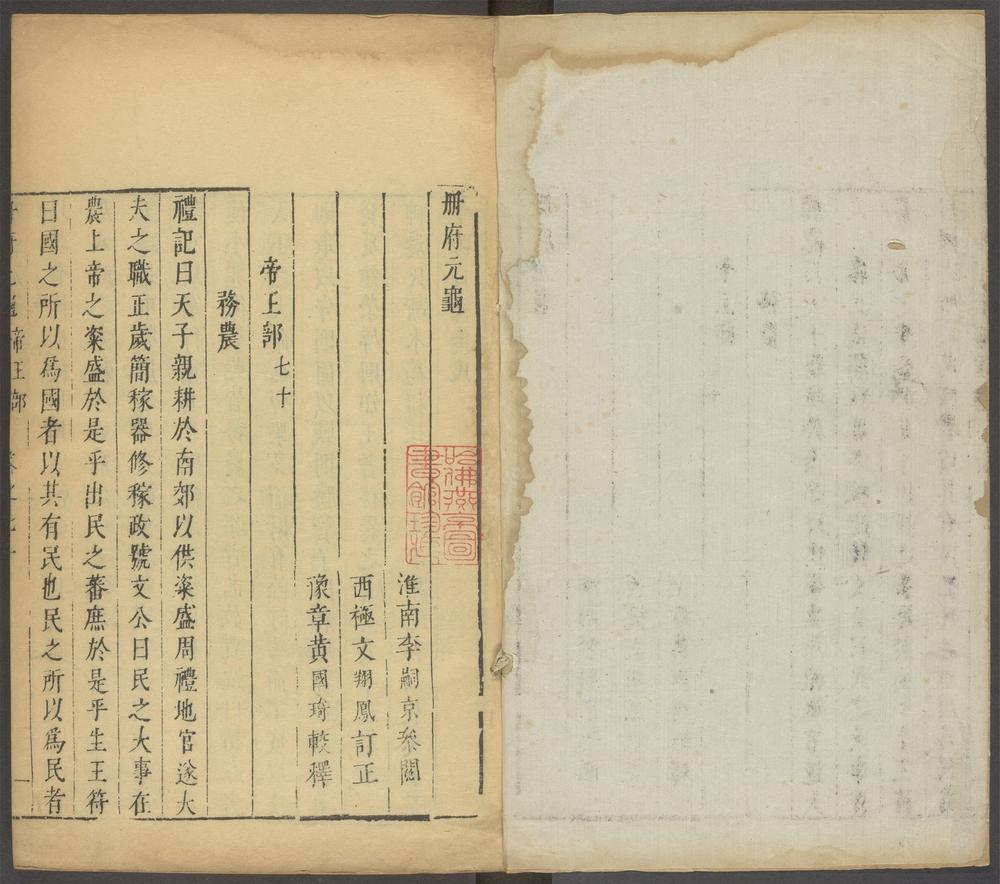 冊府元龜
淮南李嗣京叅閱
西極文翔鳳訂正
豫章黃國琦較釋
帝王部 七十
務農
禮記曰天子親耕於南郊以供粢盛周禮地官遂大
夫之職正歲簡稼器修稼政號文公曰民之大事在
農上帝之粢盛於是乎出民之蕃庶於是乎生王符
曰國之所以爲國者以其有民也民之所以爲民者
帝王部
一
哈佛燕京圖書館珍藏